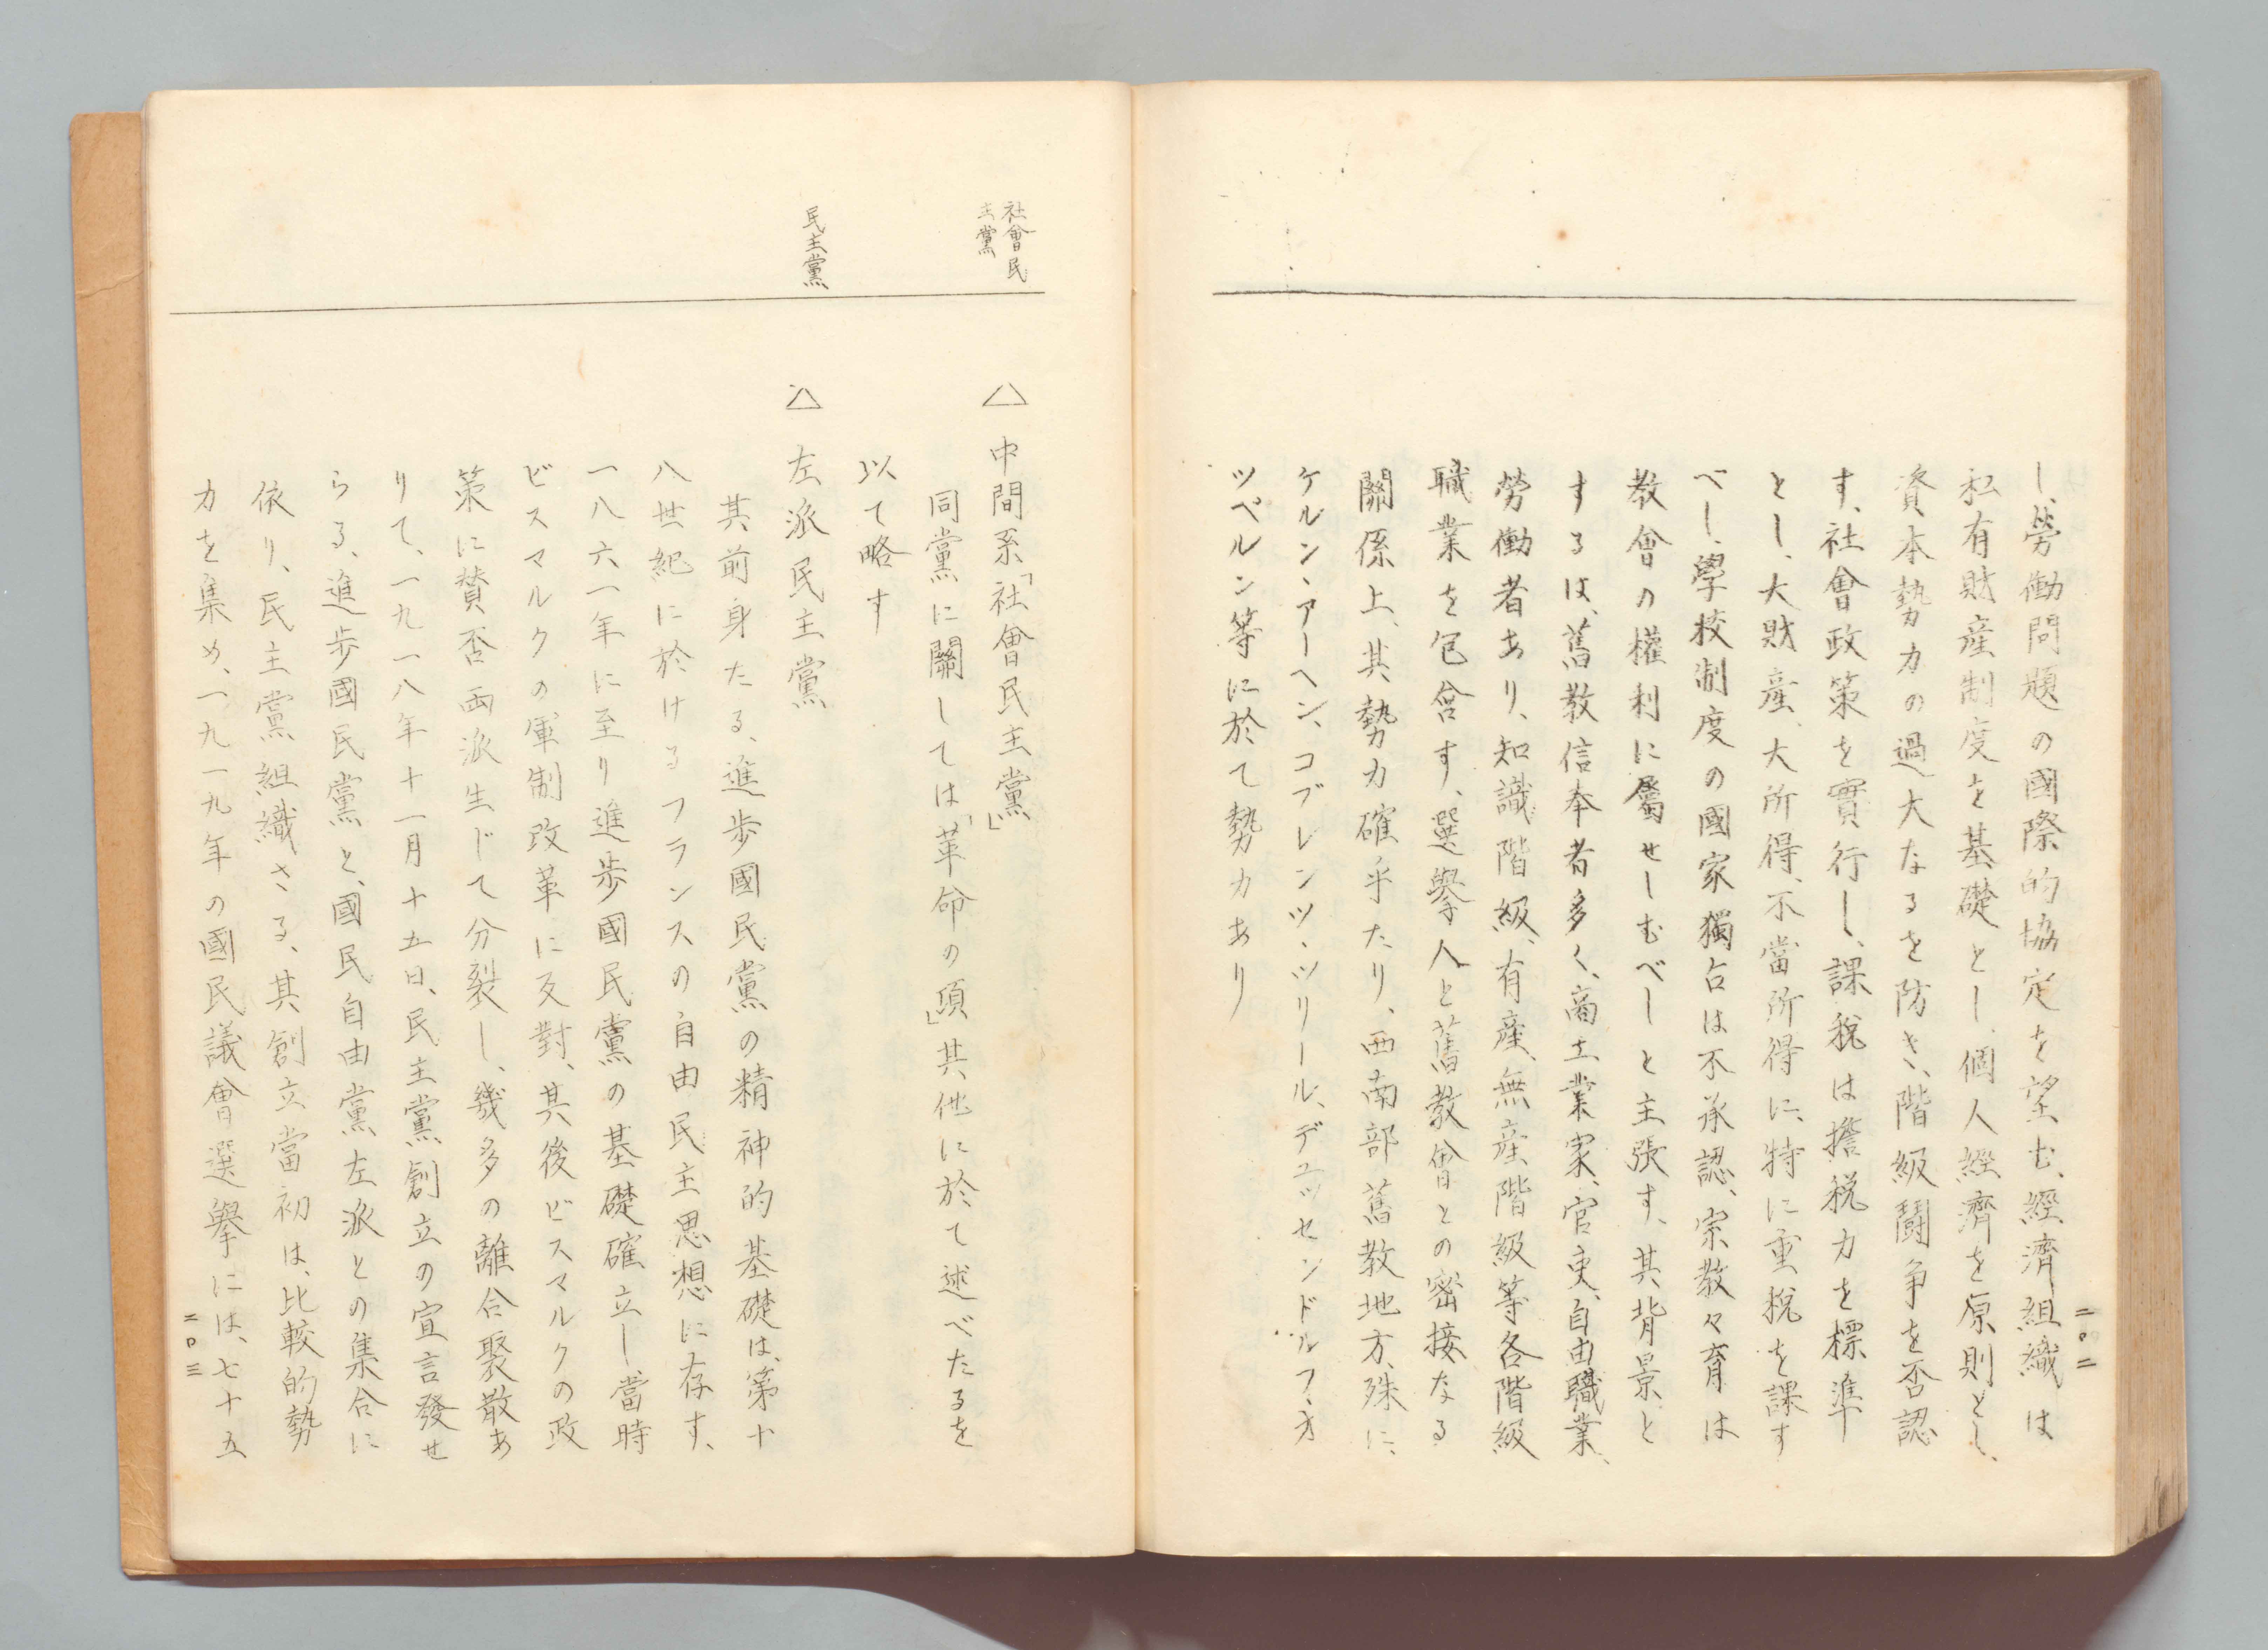 し、勞働問題の國際的協定を望む、經濟組織は
私有財産制度を基礎とし、個人經濟を原則とし、
資本勢力の過大なるを防き、階級鬪争を否認
す、社會政策を實行し、課税は擔税力を標準
とし、大財産、大所得、不當所得に、特に重税を課す
べし、學校制度の國家獨占は不承認、宗教々育は
教會の權利に屬せしむべしと主張す、其背景と
するは、舊教信奉者多く、商工業家、官吏、自由職業、
勞働者あり、知識階級、有産、無産階級等各階級
職業を包含す、選擧人と舊教會との密接なる
關係上、其勢力確乎たり、西南部舊教地方、殊に、
ケルン、アーヘン、コブレンツ、ツリール、デュッセンドルフ、オ
ツペルン等に於て勢力あり
二〇二
社會民
主黨
民主黨
△ 中間系「社會民主黨」
同黨に關しては「革命の項」其他に於て述べたるを
以て略す
△ 左派民主黨
其前身たる、進歩國民黨の精神的基礎は、第十
八世紀に於けるフランスの自由民主思想に存す、
一八六一年に至り進歩國民黨の基礎確立し、當時
ビスマルクの軍制改革に反對、其後ビスマルクの政
策に賛否両派生ドて分裂し、幾多の離合聚散あ
りて、一九一八年十一月十五日、民主黨創立の宣言發せ
らる、進歩國民黨と、國民自由黨左派との集合に
依り、民主黨組織さる、其創立當初は、比較的勢
力を集め、一九一九年の國民議會選擧には、七十五
二〇三